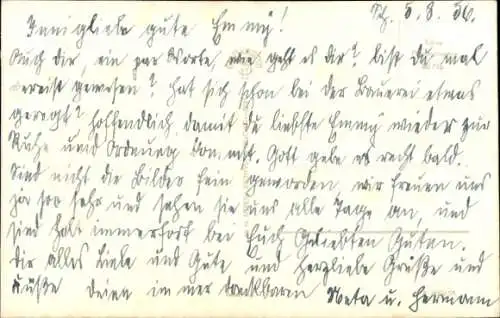 Innigliebe gute Emmy! 5.8.56.
Auch dir, ein par Worte, wie geht es dir? bist du mal
verreist gewesen? hat sich schon bei der Bauerei etwas
geregt? hoffendlich damit du liebste Emmy wieder zur
Ruhe und Ordnung kommst. Gott gebe es recht bald.
Sind nicht die Bilder fein geworden, wir freuen uns
ja soo sehr und sehen sie uns alle Tage an, und
sind halt immerfort bei Euch Geliebten Guten.
Dir alles Liebe und Gute und herzliebe Grüße und
Küße deine immer dankbaren Meta u. Hermann